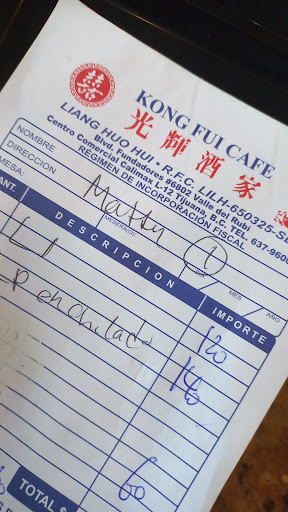 KONG FUI CAFE
光輝酒家
LIANG HUO HUI • R.F.C. LILH-650325-S
Blvd. Fundadores #6802, Valle del Rubi
Centro Comercial Calimax L-12 Tijuana, B.C. TEL 637-9600
RÉGIMEN DE INCORPORACIÓN FISCAL
NOMBRE
DIRECCION
MESA:
MESERO(A)
MES
AÑO
ANT.
DESCRIPCION
IMPORTE
120
60
TOTAL $